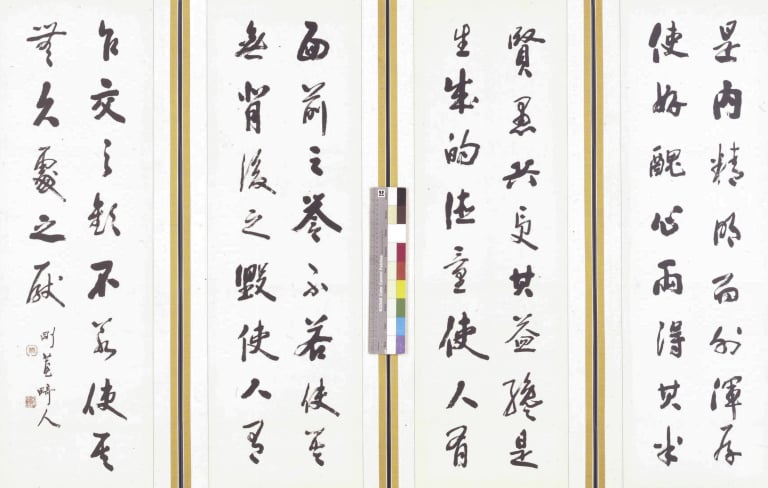 是内精明而外渾厚
使好醜心兩得其平
賢愚共受其益纔是
生成的德量使人有
面前之譽不若使其
無背後之毀使人有
乍交之歡不若使其
無久處之厭
剛菴畸人